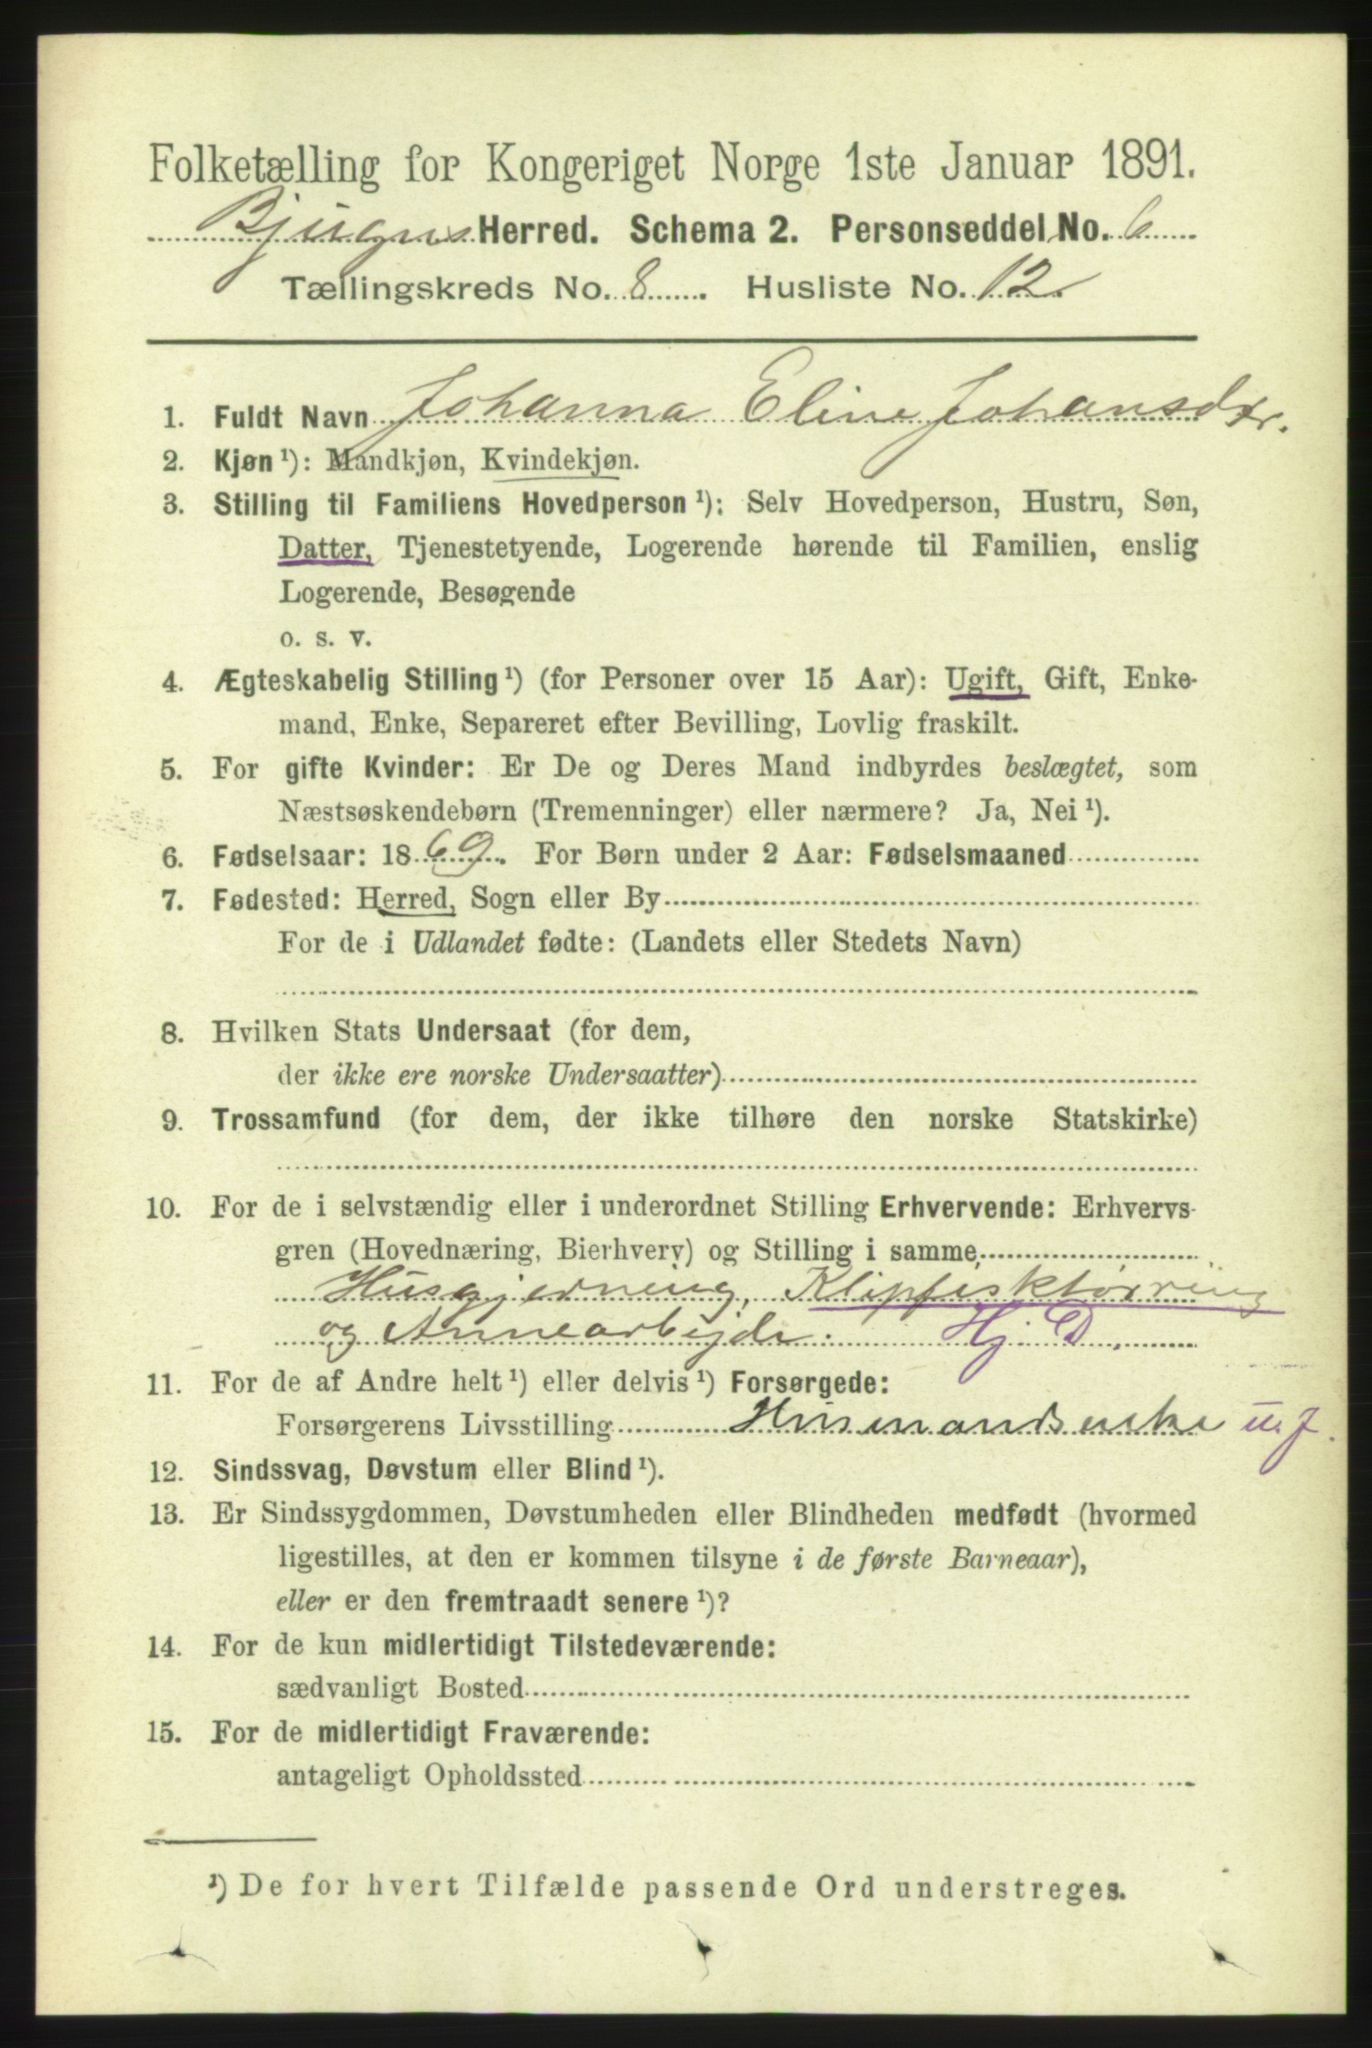 Folketælling for Kongeriget Norge 1ste Januar 1891.
Bjugns Herred. Schema 2. Personseddel No. 6
Tællingskreds No. 8. Husliste No. 12.
1. Fuldt Navn Johanna Eline Johansdtr.
2. Kjøn ¹): Mandkjøn, Kvindekjøn.
3. Stilling til Familiens Hovedperson ¹): Selv Hovedperson, Hustru, Søn,
Datter, Tjenestetyende, Logerende hørende til Familien, enslig
Logerende, Besøgende
o. s. v.
4. Ægteskabelig Stilling ¹) (for Personer over 15 Aar): Ugift, Gift, Enke-
mand, Enke, Separeret efter Bevilling, Lovlig fraskilt.
5. For gifte Kvinder: Er De og Deres Mand indbyrdes beslægtet, som
Næstsøskendebørn (Tremenninger) eller nærmere? Ja, Nei ¹).
6. Fødselsaar: 1869. For Børn under 2 Aar: Fødselsmaaned
7. Fødested: Herred, Sogn eller By
For de i Udlandet fødte: (Landets eller Stedets Navn)
8. Hvilken Stats Undersaat (for dem,
der ikke ere norske Undersaatter)
9. Trossamfund (for dem, der ikke tilhøre den norske Statskirke)
10. For de i selvstændig eller i underordnet Stilling Erhvervende: Erhvervs-
gren (Hovednæring, Bierhverv) og Stilling i samme
Husgjerning, Klipfisktørring
og Annearbejde. Hj. D.
11. For de af Andre helt ¹) eller delvis ¹) Forsørgede:
Forsørgerens Livsstilling Husmandsenke u. J.
12. Sindssvag, Døvstum eller Blind ¹).
13. Er Sindssygdommen, Døvstumheden eller Blindheden medfødt (hvormed
ligestilles, at den er kommen tilsyne i de første Barneaar),
eller er den fremtraadt senere ¹)?
14. For de kun midlertidigt Tilstedeværende:
sædvanligt Bosted
15. For de midlertidigt Fraværende:
antageligt Opholdssted
¹) De for hvert Tilfælde passende Ord understreges.